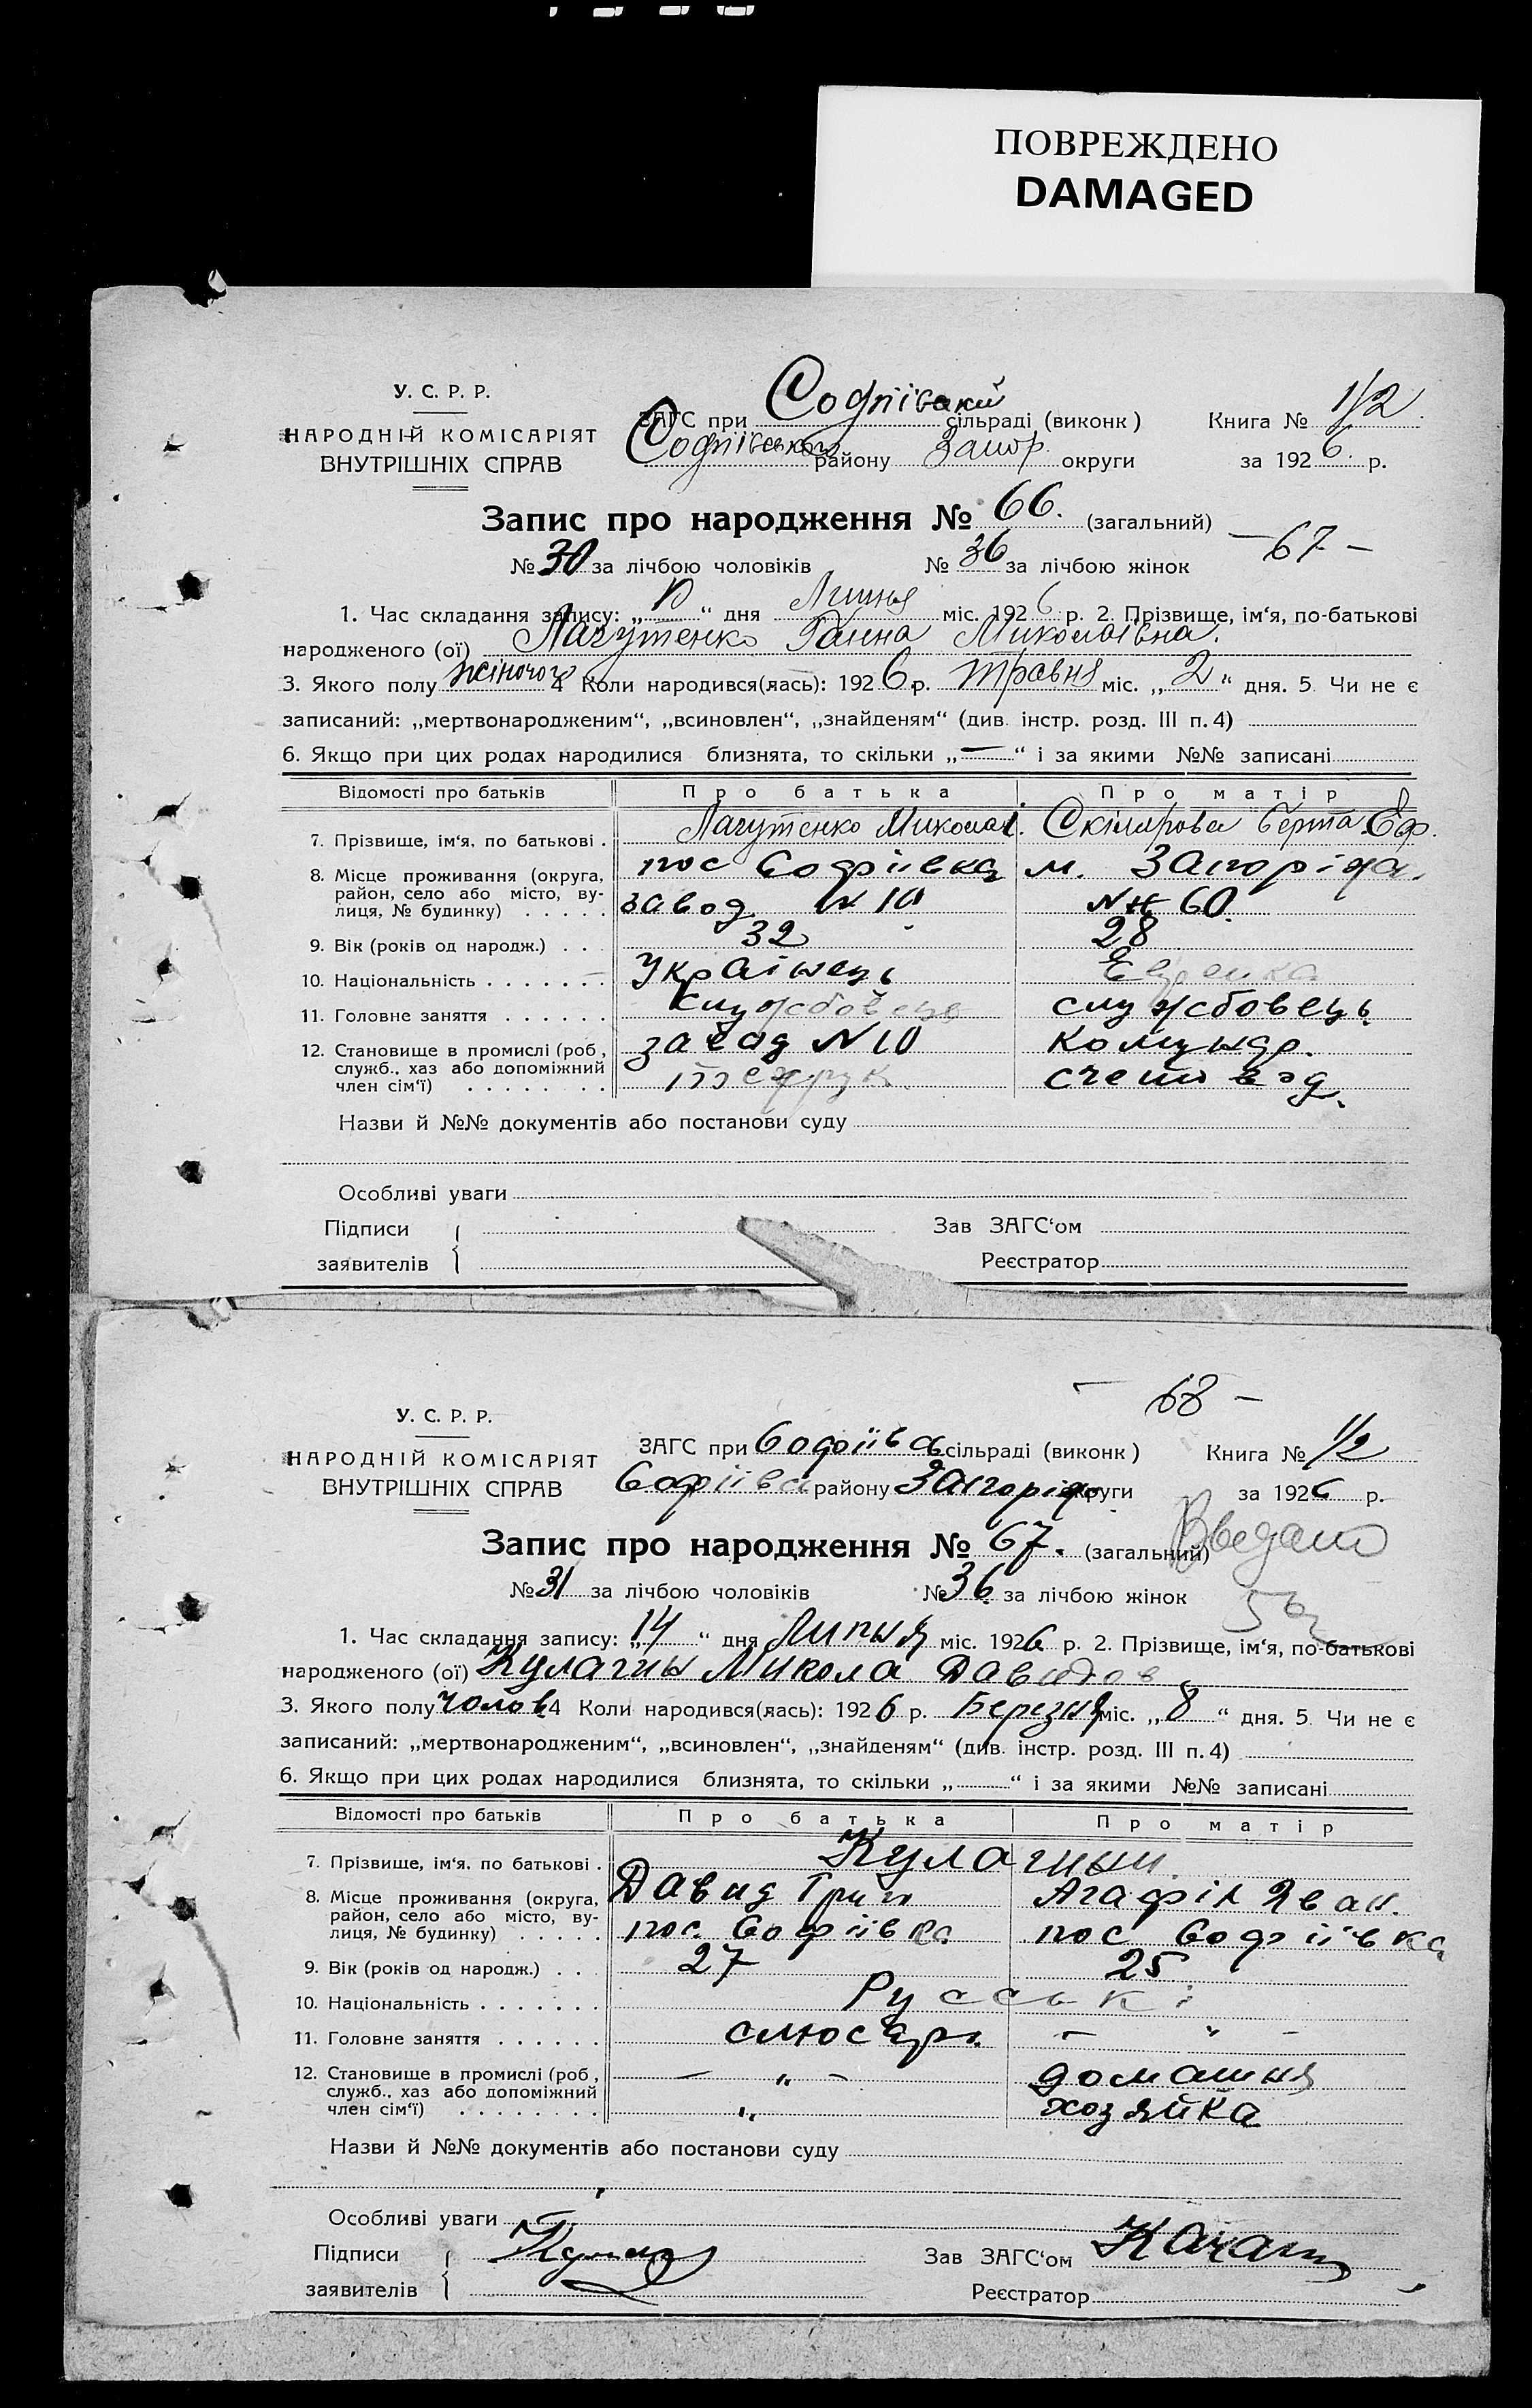 ПОВРЕЖДЕНО
DAMAGED
У. С. Р. Р.
НАРОДНІЙ КОМІСАРІЯТ
ВНУТРІШНІХ СПРАВ
ЗАГС при Софіївській сільраді (виконк) Книга № 1/2
Софіївського району Запор округи за 1926 р.
Запис про народження № 66. (загальний)
— 67 —
№ 30 за лічбою чоловіків № 36 за лічбою жінок
1. Час складання запису: „ “ дня Липня міс. 1926 р. 2. Прізвище, ім‘я, по-батькові
народженого (ої) Лагутенко Ганна Миколаївна.
3. Якого полу жіночого 4 Коли народився(лась): 1926 р. травня міс. „2“ дня. 5. Чи не є
записаний: „мертвонародженим“, „всиновлен“, „знайденям“ (див. інстр. розд. III п. 4)
6. Якщо при цих родах народилися близнята, то скільки „—“ і за якими №№ записані
Відомості про батьків Про батька Про матір
7. Прізвище, ім‘я, по батькові . Лагутенко Микола Берта Еф.
8. Місце проживання (округа, район, село або місто, вулиця, № будинку) . . . . . пос Софіївка м. Запоріжа.
завод № 10 № 60
9. Вік (років од народж.) . . . 32 28
10. Національність . . . . . . . Українець Еврейка
11. Головне заняття . . . . . . службовець службовець
12. Становище в промислі (роб, служб., хаз або допоміжний член сім‘ї) . . . . . . . . завод N 10 комунар.
техрук. счетовод.
Назви й №№ документів або постанови суду
Особливі уваги
Підписи Зав ЗАГС‘ом
заявителів Реєстратор
— 68 —
У. С. Р. Р.
НАРОДНІЙ КОМІСАРІЯТ
ВНУТРІШНІХ СПРАВ
ЗАГС при Софіївсь сільраді (виконк) Книга № 1/2
Софіївсь району Запоріж округи за 1926 р.
Запис про народження № 67. (загальний)
№ 31 за лічбою чоловіків № 36 за лічбою жінок
1. Час складання запису: „14“ дня Липня міс. 1926 р. 2. Прізвище, ім‘я, по-батькові
народженого (ої) Кулагин Микола Давидов
3. Якого полу чолов 4 Коли народився(лась): 1926 р. Березня міс. „8“ дня. 5. Чи не є
записаний: „мертвонародженим“, „всиновлен“, „знайденям“ (див. інстр. розд. III п. 4)
6. Якщо при цих родах народилися близнята, то скільки „ “ і за якими №№ записані
Відомості про батьків Про батька Про матір
7. Прізвище, ім‘я, по батькові . Кулагины
8. Місце проживання (округа, район, село або місто, вулиця, № будинку) . . . . . Давид Григ Агафія Иван.
пос. Софіївка пос Софіївка
9. Вік (років од народж.) . . . 27 25
10. Національність . . . . . . . Русські
11. Головне заняття . . . . . . слюсарь — „ —
12. Становище в промислі (роб, служб., хаз або допоміжний член сім‘ї) . . . . . . . . — „ — домашня
„ хозяйка
Назви й №№ документів або постанови суду
Особливі уваги
Підписи Зав ЗАГС‘ом
заявителів Реєстратор